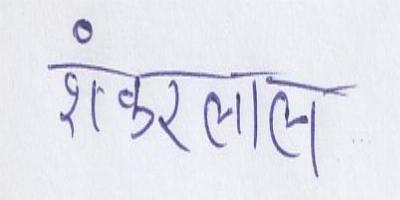 शंकरलाल